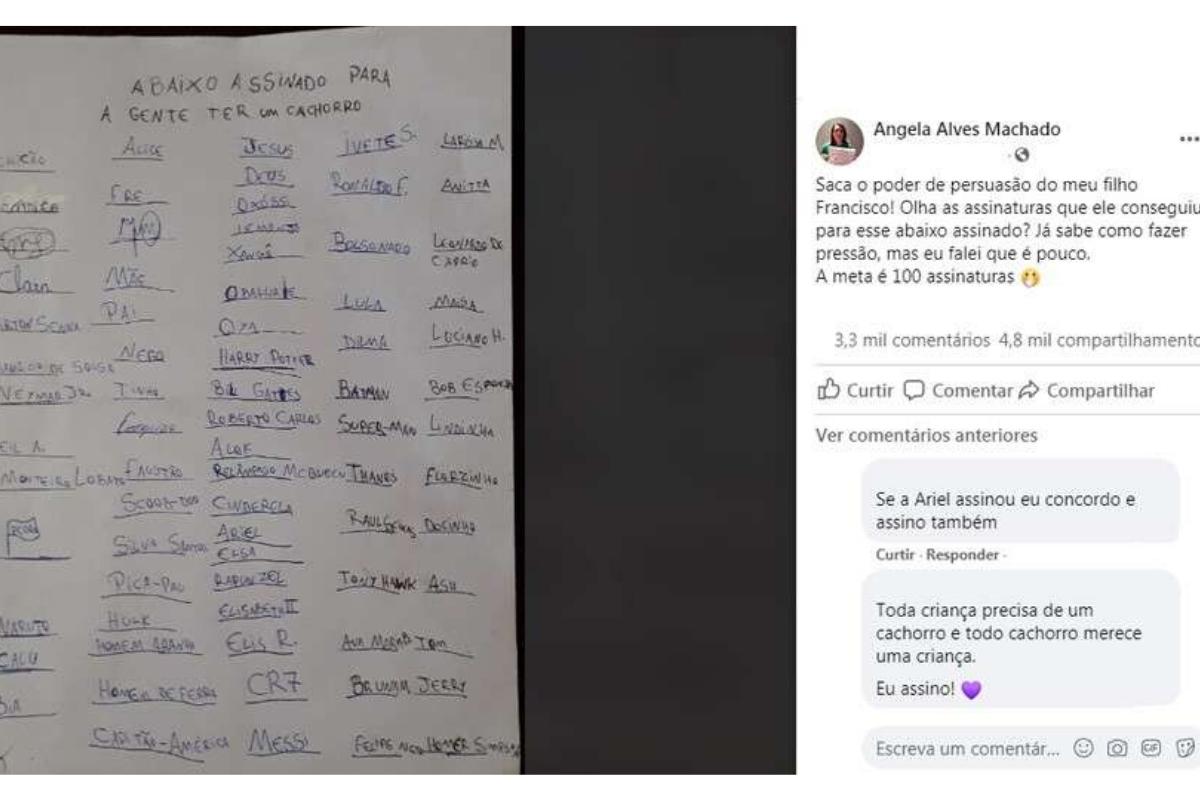 ABAIXO ASSINADO PARA
A GENTE TER UM CACHORRO
ALICE
MÃE
PAI
NEGO
FAUSTÃO
SCOOB-DOO
SILVIO SANTOS
PICA-PAU
HULK
HOMEM ARANHA
HOMEM DE FERRO
CAPITÃO-AMÉRICA
Clain
NEYMAR JR.
MONTEIRO LOBATO
NARUTO
JESUS
DEUS
OXÓSSI
XANGÔ
OBALUAIE
OYA
HARRY POTTER
BIL GATTES
ROBERTO CARLOS
ALOK
RELÂMPAGO MCQUEEN
CINDERELA
ARIEL
ELSA
RAPUNZEL
ELISABETH II
ELIS R.
CR7
MESSI
IVETE S.
RONALDO F.
BOLSONARO
LULA
DILMA
BATMAN
SUPER-MAN
THANOS
RAUL SEIXAS
TONY HAWK
ANA MARIA B
BRUNA M
FELIPE NETO
LARISSA M
ANITTA
LEONARDO DE
CAPRIO
MAISA
LUCIANO H.
BOB ESPONJA
LINDINHA
FLORZINHA
DOCINHO
ASH
TOM
JERRY
HOMER SIMPSON
Angela Alves Machado
Saca o poder de persuasão do meu filho
Francisco! Olha as assinaturas que ele conseguiu
para esse abaixo assinado? Já sabe como fazer
pressão, mas eu falei que é pouco.
A meta é 100 assinaturas
3,3 mil comentários 4,8 mil compartilhamento
Curtir Comentar Compartilhar
Ver comentários anteriores
Se a Ariel assinou eu concordo e
assino também
Curtir · Responder ·
Toda criança precisa de um
cachorro e todo cachorro merece
uma criança.
Eu assino!
Escreva um comentár...
GIF